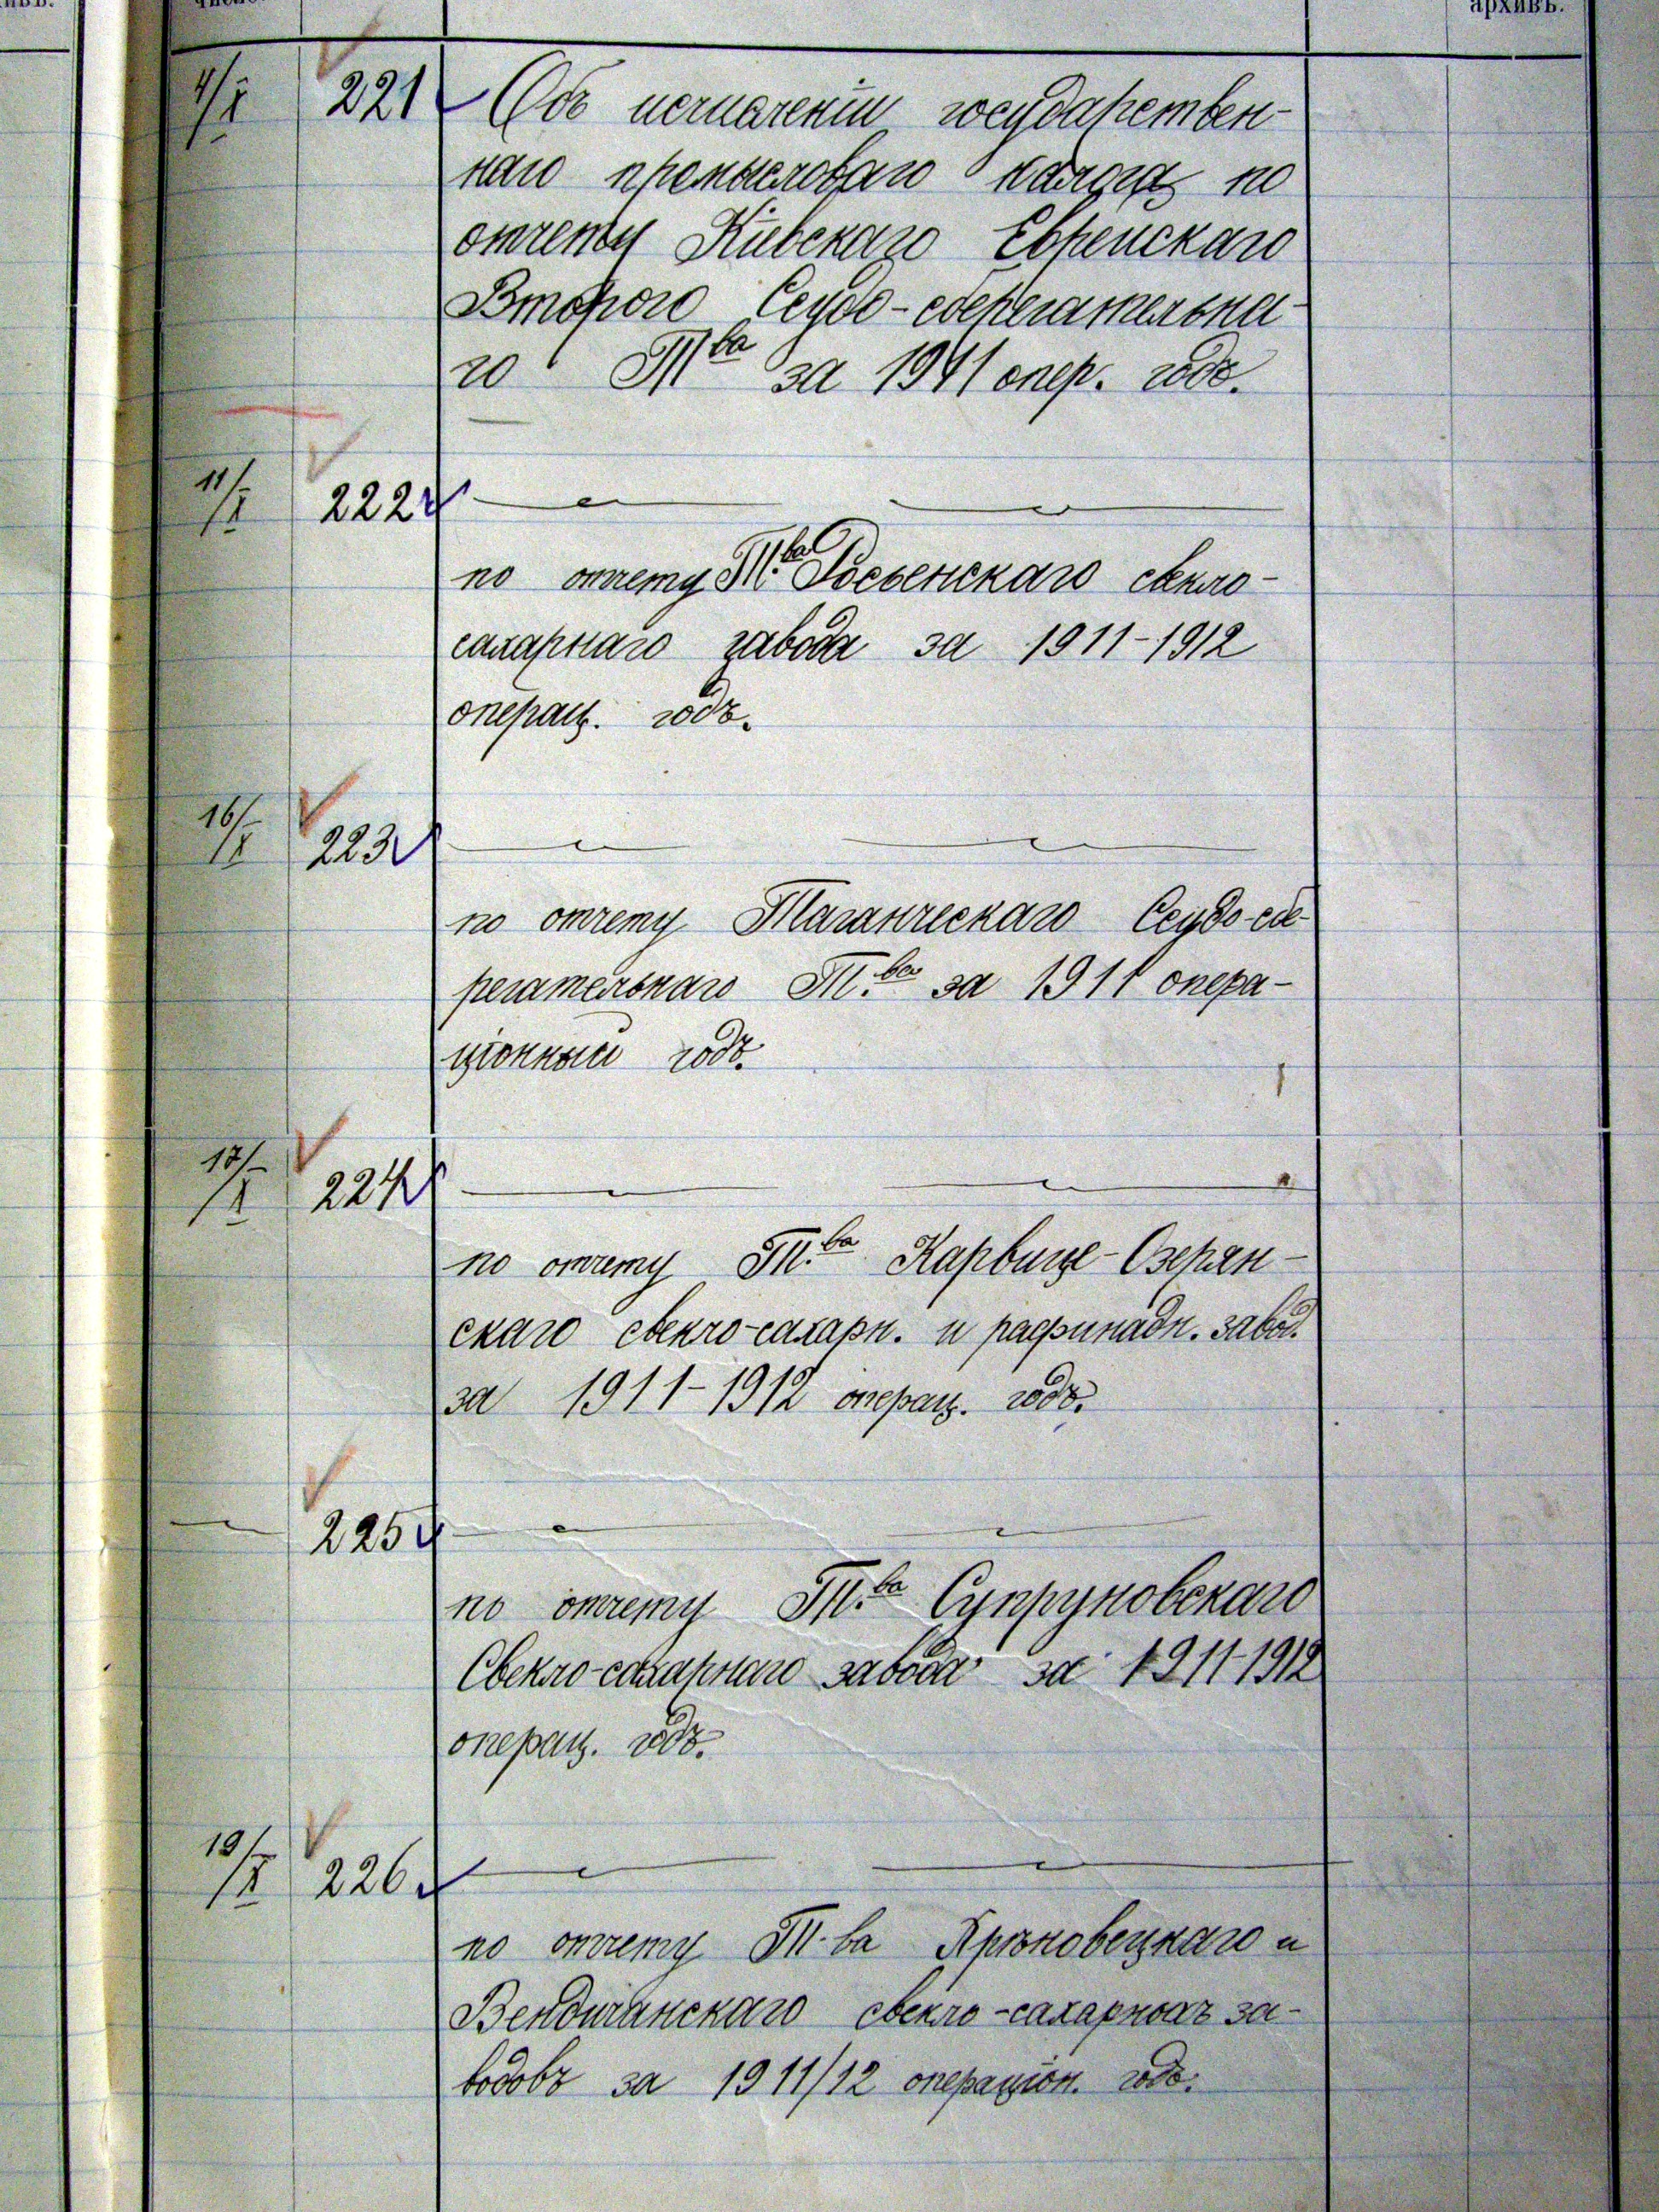 архивъ.
4/X 221 Объ исчисленіи государствен-
наго промысловаго налога по
отчету Кіевскаго Еврейскаго
Второго Ссудо-сберегательна-
го Т-ва за 1911 опер. годъ.
11/X 222
по отчету Т-ва Росьенскаго свекло-
сахарнаго завода за 1911-1912
операц. годъ.
16/X 223
по отчету Таганческаго Ссудо-сбе-
регательнаго Т-ва за 1911 опера-
ціонный годъ.
17/X 224
по отчету Т-ва Карвице-Озерян-
скаго свекло-сахарн. и рафинадн. завод.
за 1911-1912 операц. годъ.
225
по отчету Т-ва Супруновскаго
Свекло-сахарнаго завода за 1911-1912
операц. годъ.
19/X 226
по отчету Т-ва и
Вендичанскаго свекло-сахарныхъ за-
водовъ за 1911/12 операціон. годъ.